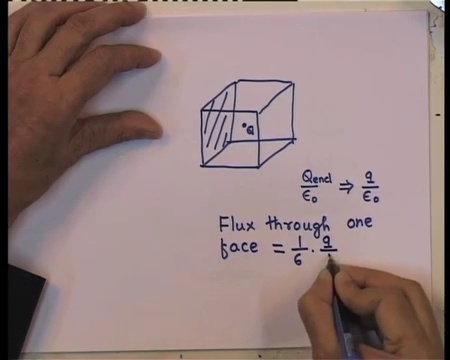 Q
Qencl/ε₀ ⇒ q/ε₀
Flux through one
face = 1/6 · q/